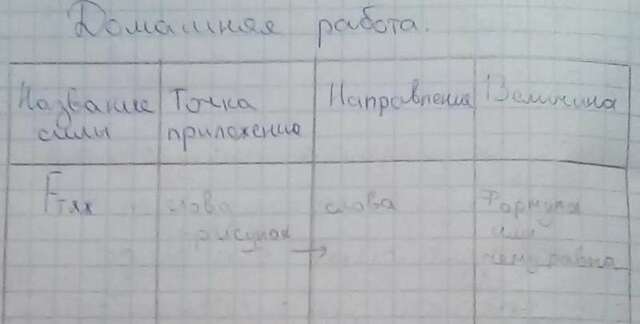 Домашняя работа.
Название силы
Точка приложение
Направление
Величина
Fтяж
слова рисунок →
слова
Формула или чему равна